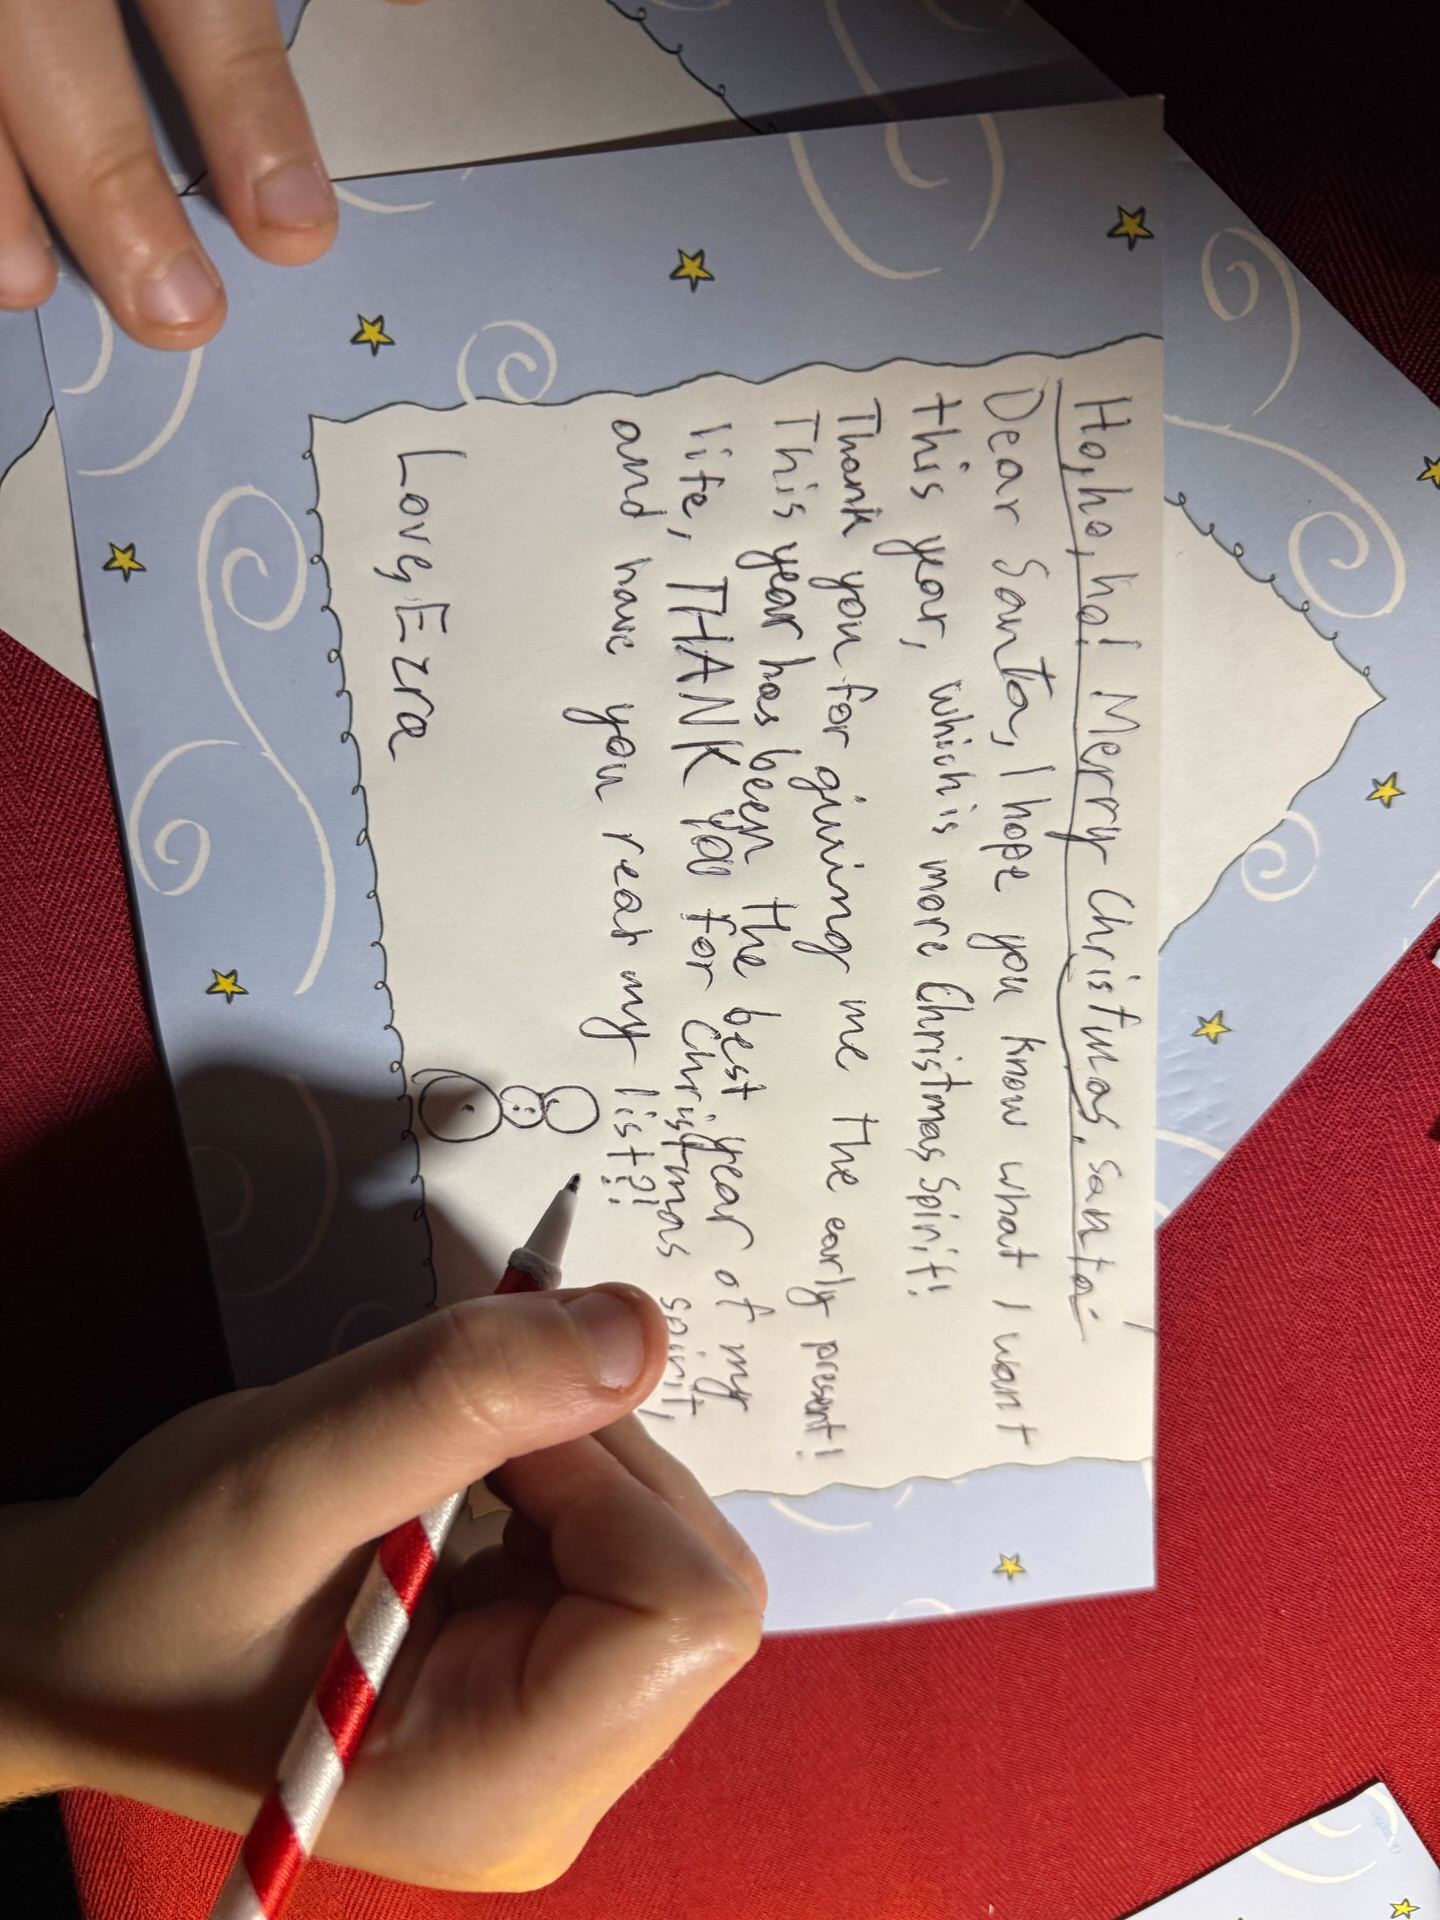 Ho, ho, ho! Merry Christmas, santa!
Dear Santa, I hope you know what I want
this year, which is more Christmas Spirit!
Thank you for giving me the early present!
This year has been the best year of my
life, THANK YOU for Christmas spirit,
and have you reat my list?!
Love, Ezra